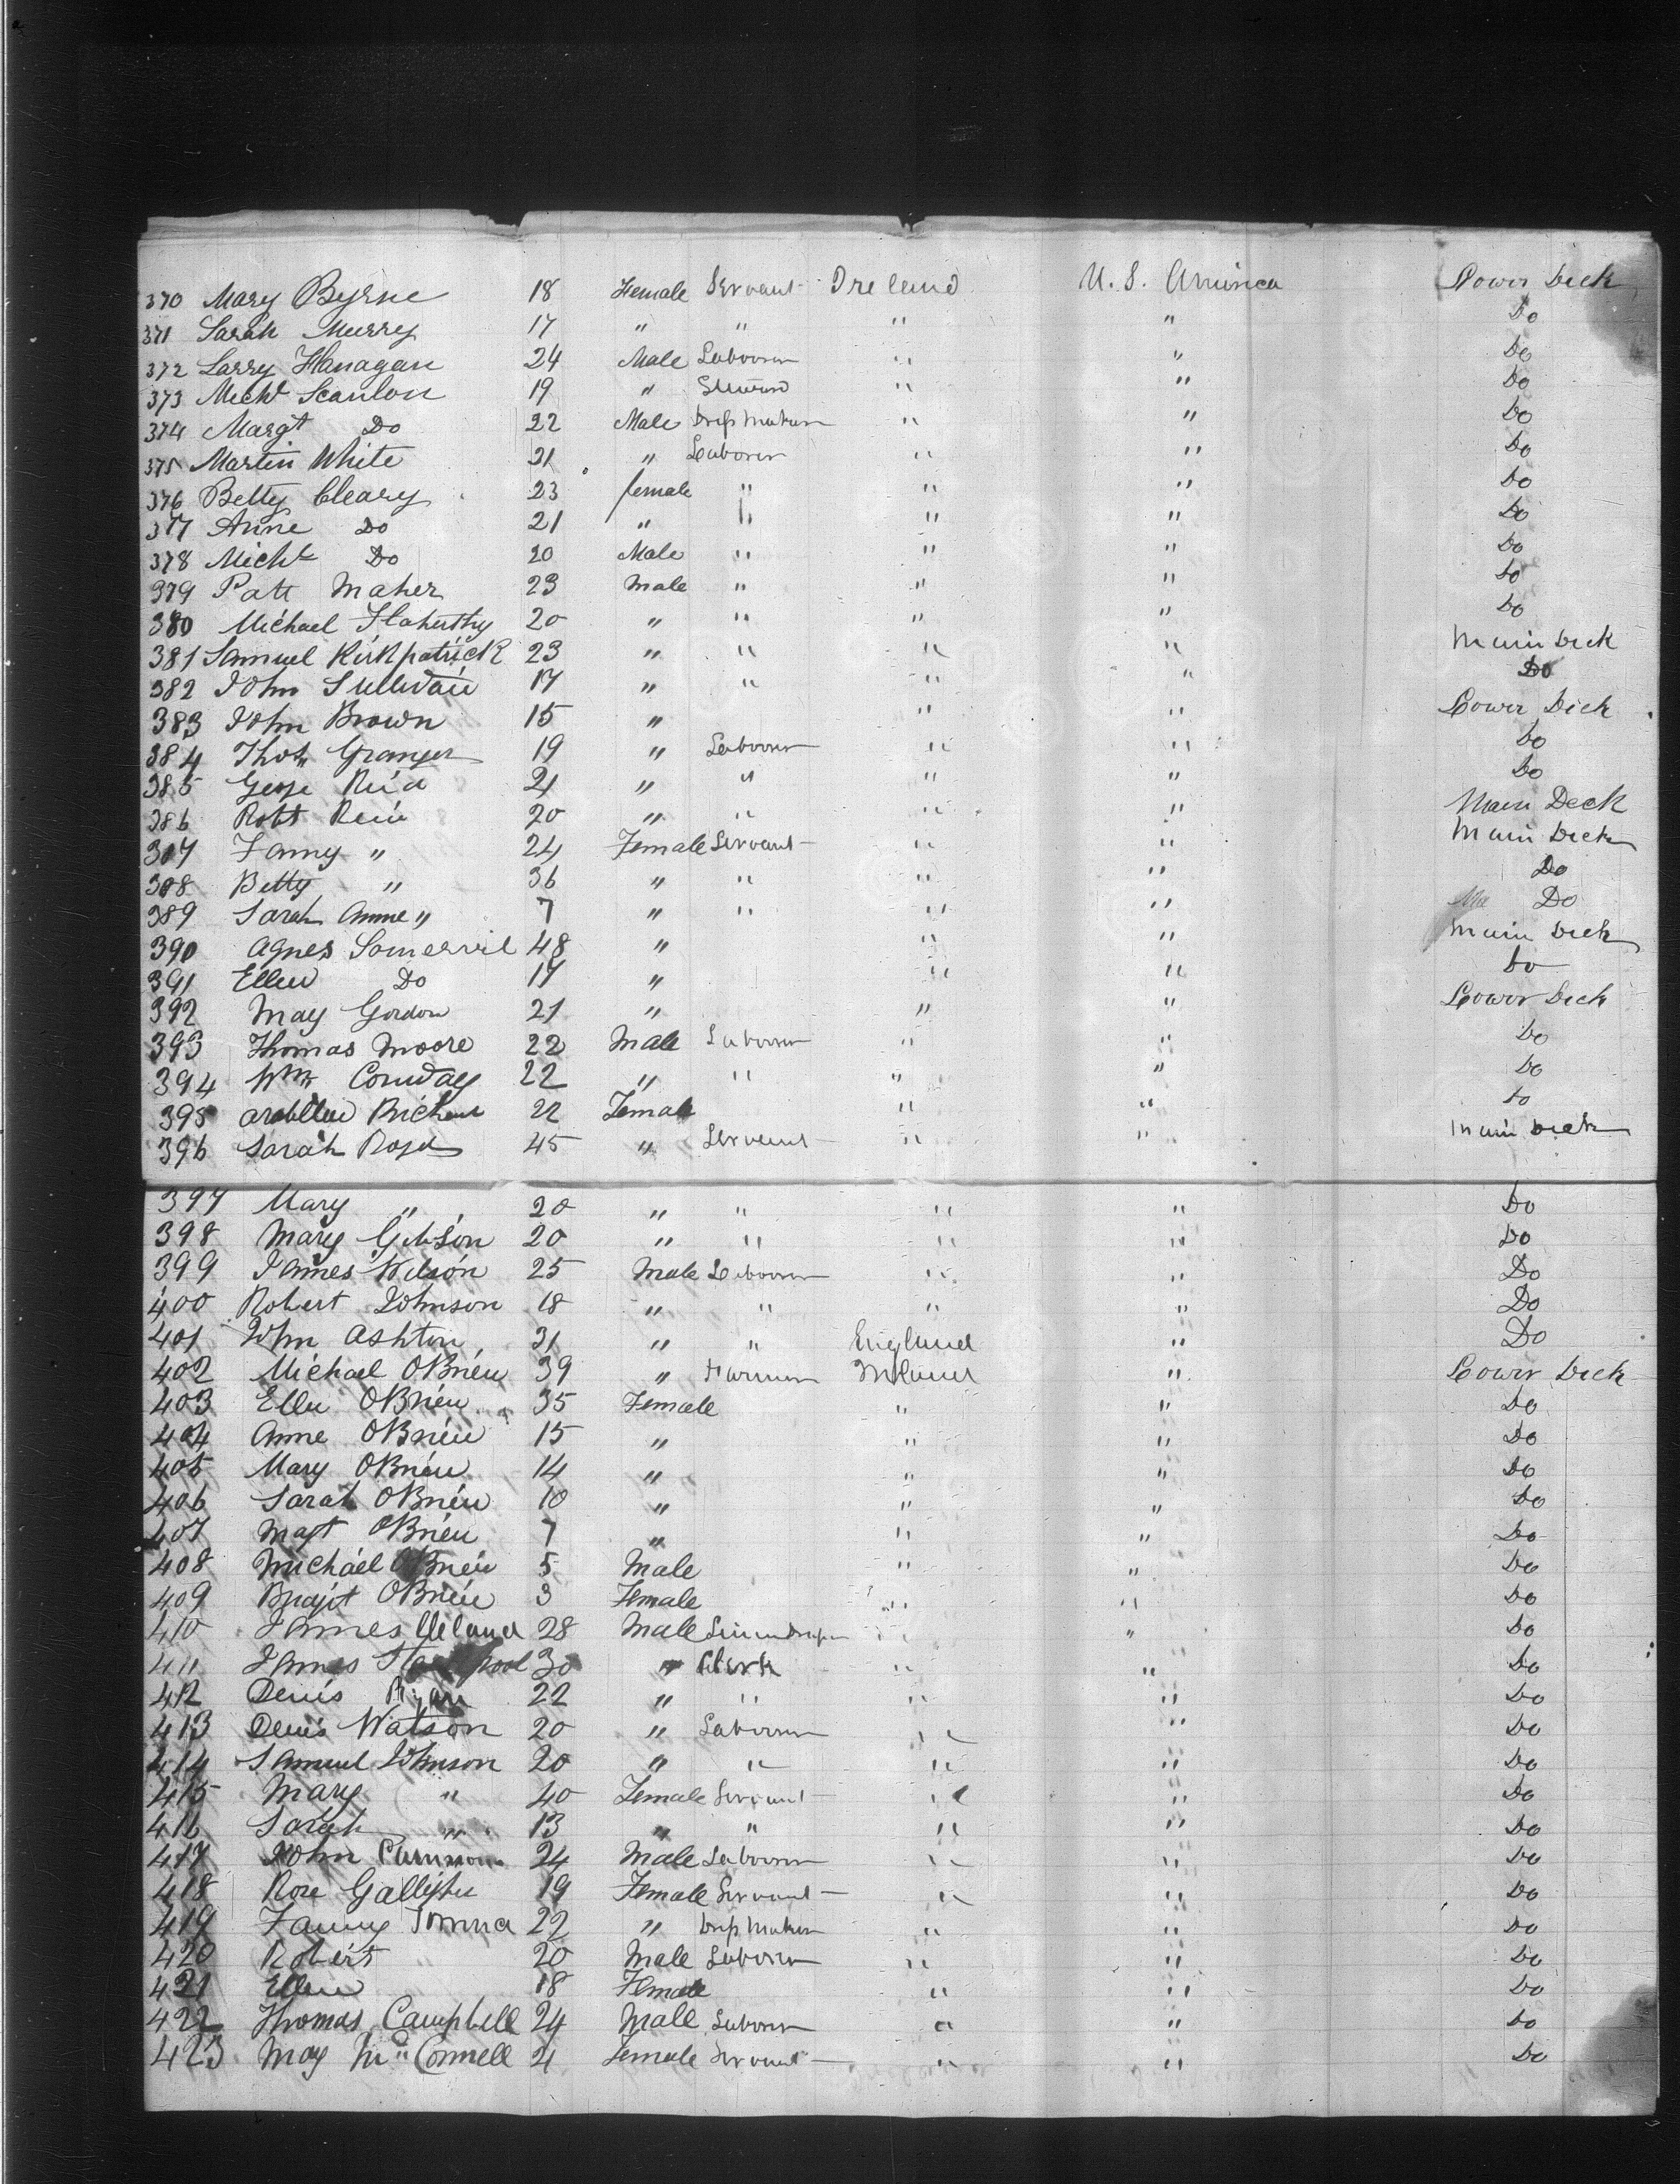 370 Mary Byrne 18 Female Servant Ireland U. S. America Lower Deck
371 Sarah Murry 17 " " " " Do
372 Larry Flanagan 24 Male Labourer " " Do
373 Michl Scanlon 19 " " " Do
374 Margt Do 22 Male Dress Maker " " Do
375 Martin White 21 " Laborer " " Do
376 Betty Cleary 23 female " " " Do
377 Anne Do 21 " " " " Do
378 Michl Do 20 Male " " " Do
379 Patt Maher 23 Male " " " Do
380 Michael Flaherthy 20 " " " " Do
381 Samuel Kirkpatrick 23 " " " " Main Deck
382 John Sullivan 17 " " " " Do
383 John Brown 15 " " " Lower Deck
384 Thos Granger 19 " Labourer " " Do
385 Reid 21 " " " " Do
386 Robt 20 " " " " Main Deck
387 Fanny " 24 Female Servant " " Main Deck
388 Betty " 36 " " " " Do
389 Sarah Anne " 7 " " " " Do
390 Agnes Somervil 48 " " " Main Deck
391 Ellen Do 17 " " " Do
392 May Gordon 21 " " " Lower Deck
393 Thomas Moore 22 Male Labourer " " Do
394 Wm 22 " " " " Do
395 22 Female " " Do
396 Sarah 45 " Servant " " Main Deck
397 Mary " 20 " " " " Do
398 Mary Gibson 20 " " " " Do
399 James Wilson 25 Male Labourer " " Do
400 Robert Johnson 18 " " " " Do
401 John Ashton 31 " " England " Do
402 Michael OBrien 39 " Farmer Ireland " Lower Deck
403 Ellen OBrien 35 Female " " Do
404 Anne OBrien 15 " " " Do
405 Mary OBrien 14 " " " Do
406 Sarah OBrien 10 " " " Do
407 Magt OBrien 7 " " " Do
408 Michael OBrien 5 Male " " Do
409 OBrien 3 Female " " Do
410 James Cleland 28 Male Linen Draper " " Do
411 James 30 " Clerk " " Do
412 Denis Ryan 22 " " " " Do
413 Denis Watson 20 " Labourer " " Do
414 Samuel Johnson 20 " " " " Do
415 Mary " 40 Female Servant " " Do
416 Sarah " 13 " " " " Do
417 John 24 Male Labourer " " Do
418 Rose 19 Female Servant " " Do
419 Fanny 22 " Dress Maker " " Do
420 Robert " 20 Male Laborer " " Do
421 Ellen 18 Female " " Do
422 Thomas Campbell 24 Male Laborer " " Do
423 May Mc Connell 21 Female Servant " " Do